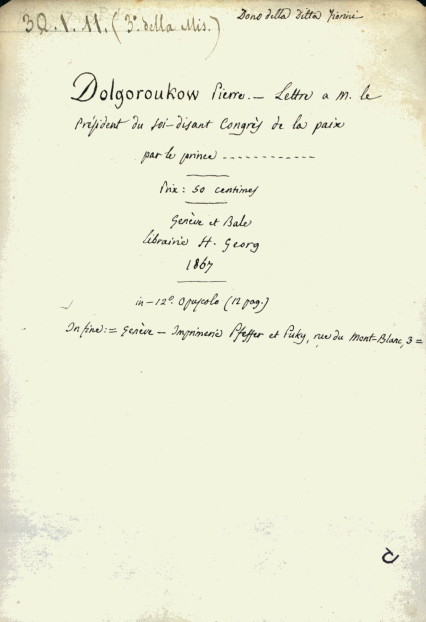 39.1.11. (3ª della Mis.)
Dono della Ditta Fiorini
Dolgoroukow Pierre. — Lettre a M. le
Président du soi-disant Congrès de la paix
par le prince ------------
Prix : 50 centimes
Genève et Bale
librairie H. Georg
1867
in-12º. Opuscolo (12 pag.)
In fine: = Genève — Imprimerie Pfeffer et Puky, rue du Mont-Blanc, 3 =